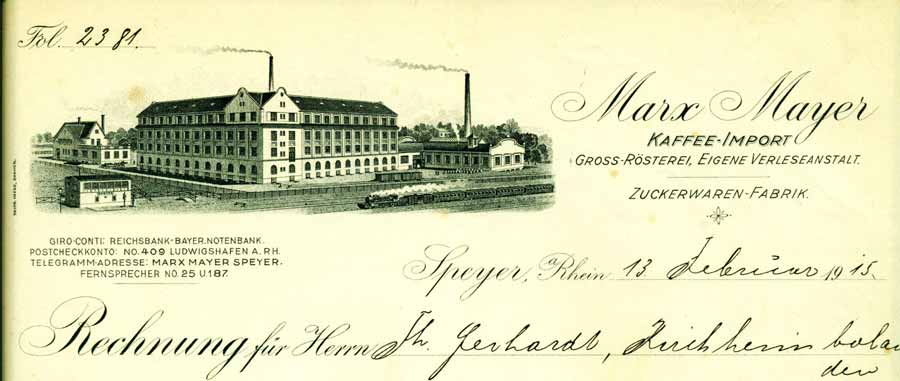 Fol. 2381.
Marx Mayer
KAFFEE-IMPORT
GROSS-RÖSTEREI, EIGENE VERLESEANSTALT.
ZUCKERWAREN-FABRIK.
GIRO-CONTI: REICHSBANK-BAYER.NOTENBANK.
POSTCHECKKONTO: NO. 409 LUDWIGSHAFEN A. RH.
TELEGRAMM-ADRESSE: MARX MAYER SPEYER.
FERNSPRECHER NO. 25 U. 187.
Speyer, a/Rhein 13 Februar 1915.
Rechnung für Herrn Th. Gerhardt, Kirchheimbolan
den